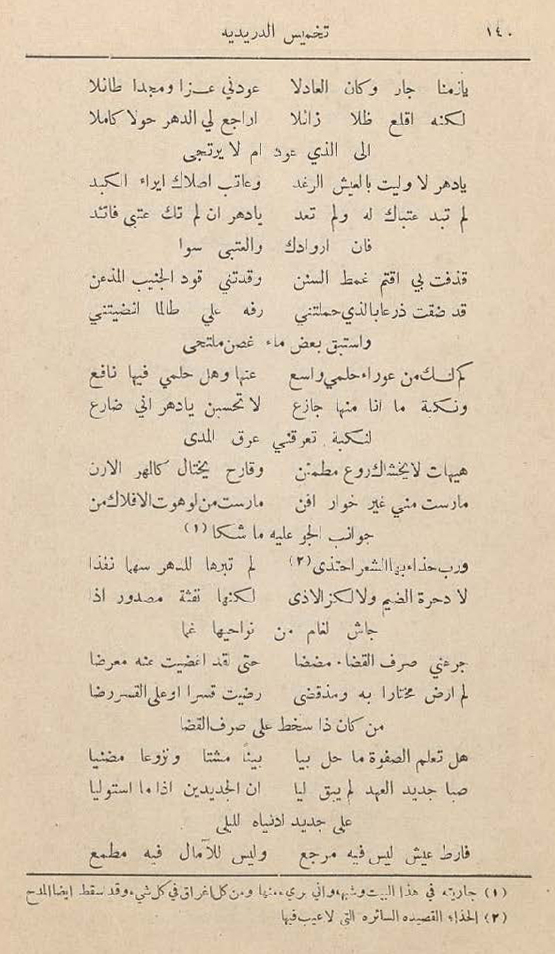 ١٤٠ تخميس الدريديه
يازمنا جار وكان العادلا عودني عزا ومجدا طائلا
لكنه اقلع ظلا زائلا اراجع لي الدهر حولا كاملا
الى الذي عود ام لا يرتجى
يادهر لا وليت بالعيش الرغد وعاتب اصلاك ايراء الكبد
لم تبد عتباك له ولم تعد يادهر ان لم تك عتبى فاتئد
فان اروادك والعتبى سوا
قذفت بي اقتم غمط السنن وقدتني قود الجنيب المذعن
قد ضقت ذرعا بالذي حملتني رفه علي طالما انضيتني
واستبق بعض ماء غصن ملتحى
كم لك من عوراء حلمي واسع عنها وهل حلمي فيها نافع
ونكبة ما انا منها جازع لا تحسبن يادهر اني ضارع
لنكبة تعرقني عرق المدى
هيهات لا يخشاك روع مطمئن وقارح يختال كالمهر الارن
مارست مني غير خوار افن مارست من لو هوت الافلاك من
جوانب الجو عليه ما شكا (١)
ورب حذاء بها الشعر احتذى (٢) لم تبرها للدهر سهما نفذا
لا دحرة الضيم ولا لكز الاذى لكنها نفثة مصدور اذا
جاش لغام من نواحيها غما
جرعني صرف القضاء مضضا حتى لقد اغضيت عنه معرضا
لم ارض مختارا به ومذ قضى رضيت قسرا وعلى القسر رضا
من كان ذا سخط على صرف القضا
هل تعلم الصفوة ما حل بيا بينا مشتا ونزوعا مضنيا
صبا جديد العهد لم يبق ليا ان الجديدين اذا ما استوليا
على جديد ادنياه للبلى
فارط عيش ليس فيه مرجع وليس للآمال فيه مطمع
(١) جاريته في هذا البيت وشبهه واني بريء منها ومن كل اغراق في كل شيء وقد سقط ايضا المدح
(٢) الحذاء القصيده السائره التي لا عيب فيها